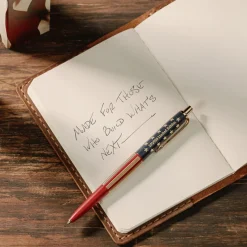 MADE FOR THOSE
WHO BUILD WHAT'S
NEXT